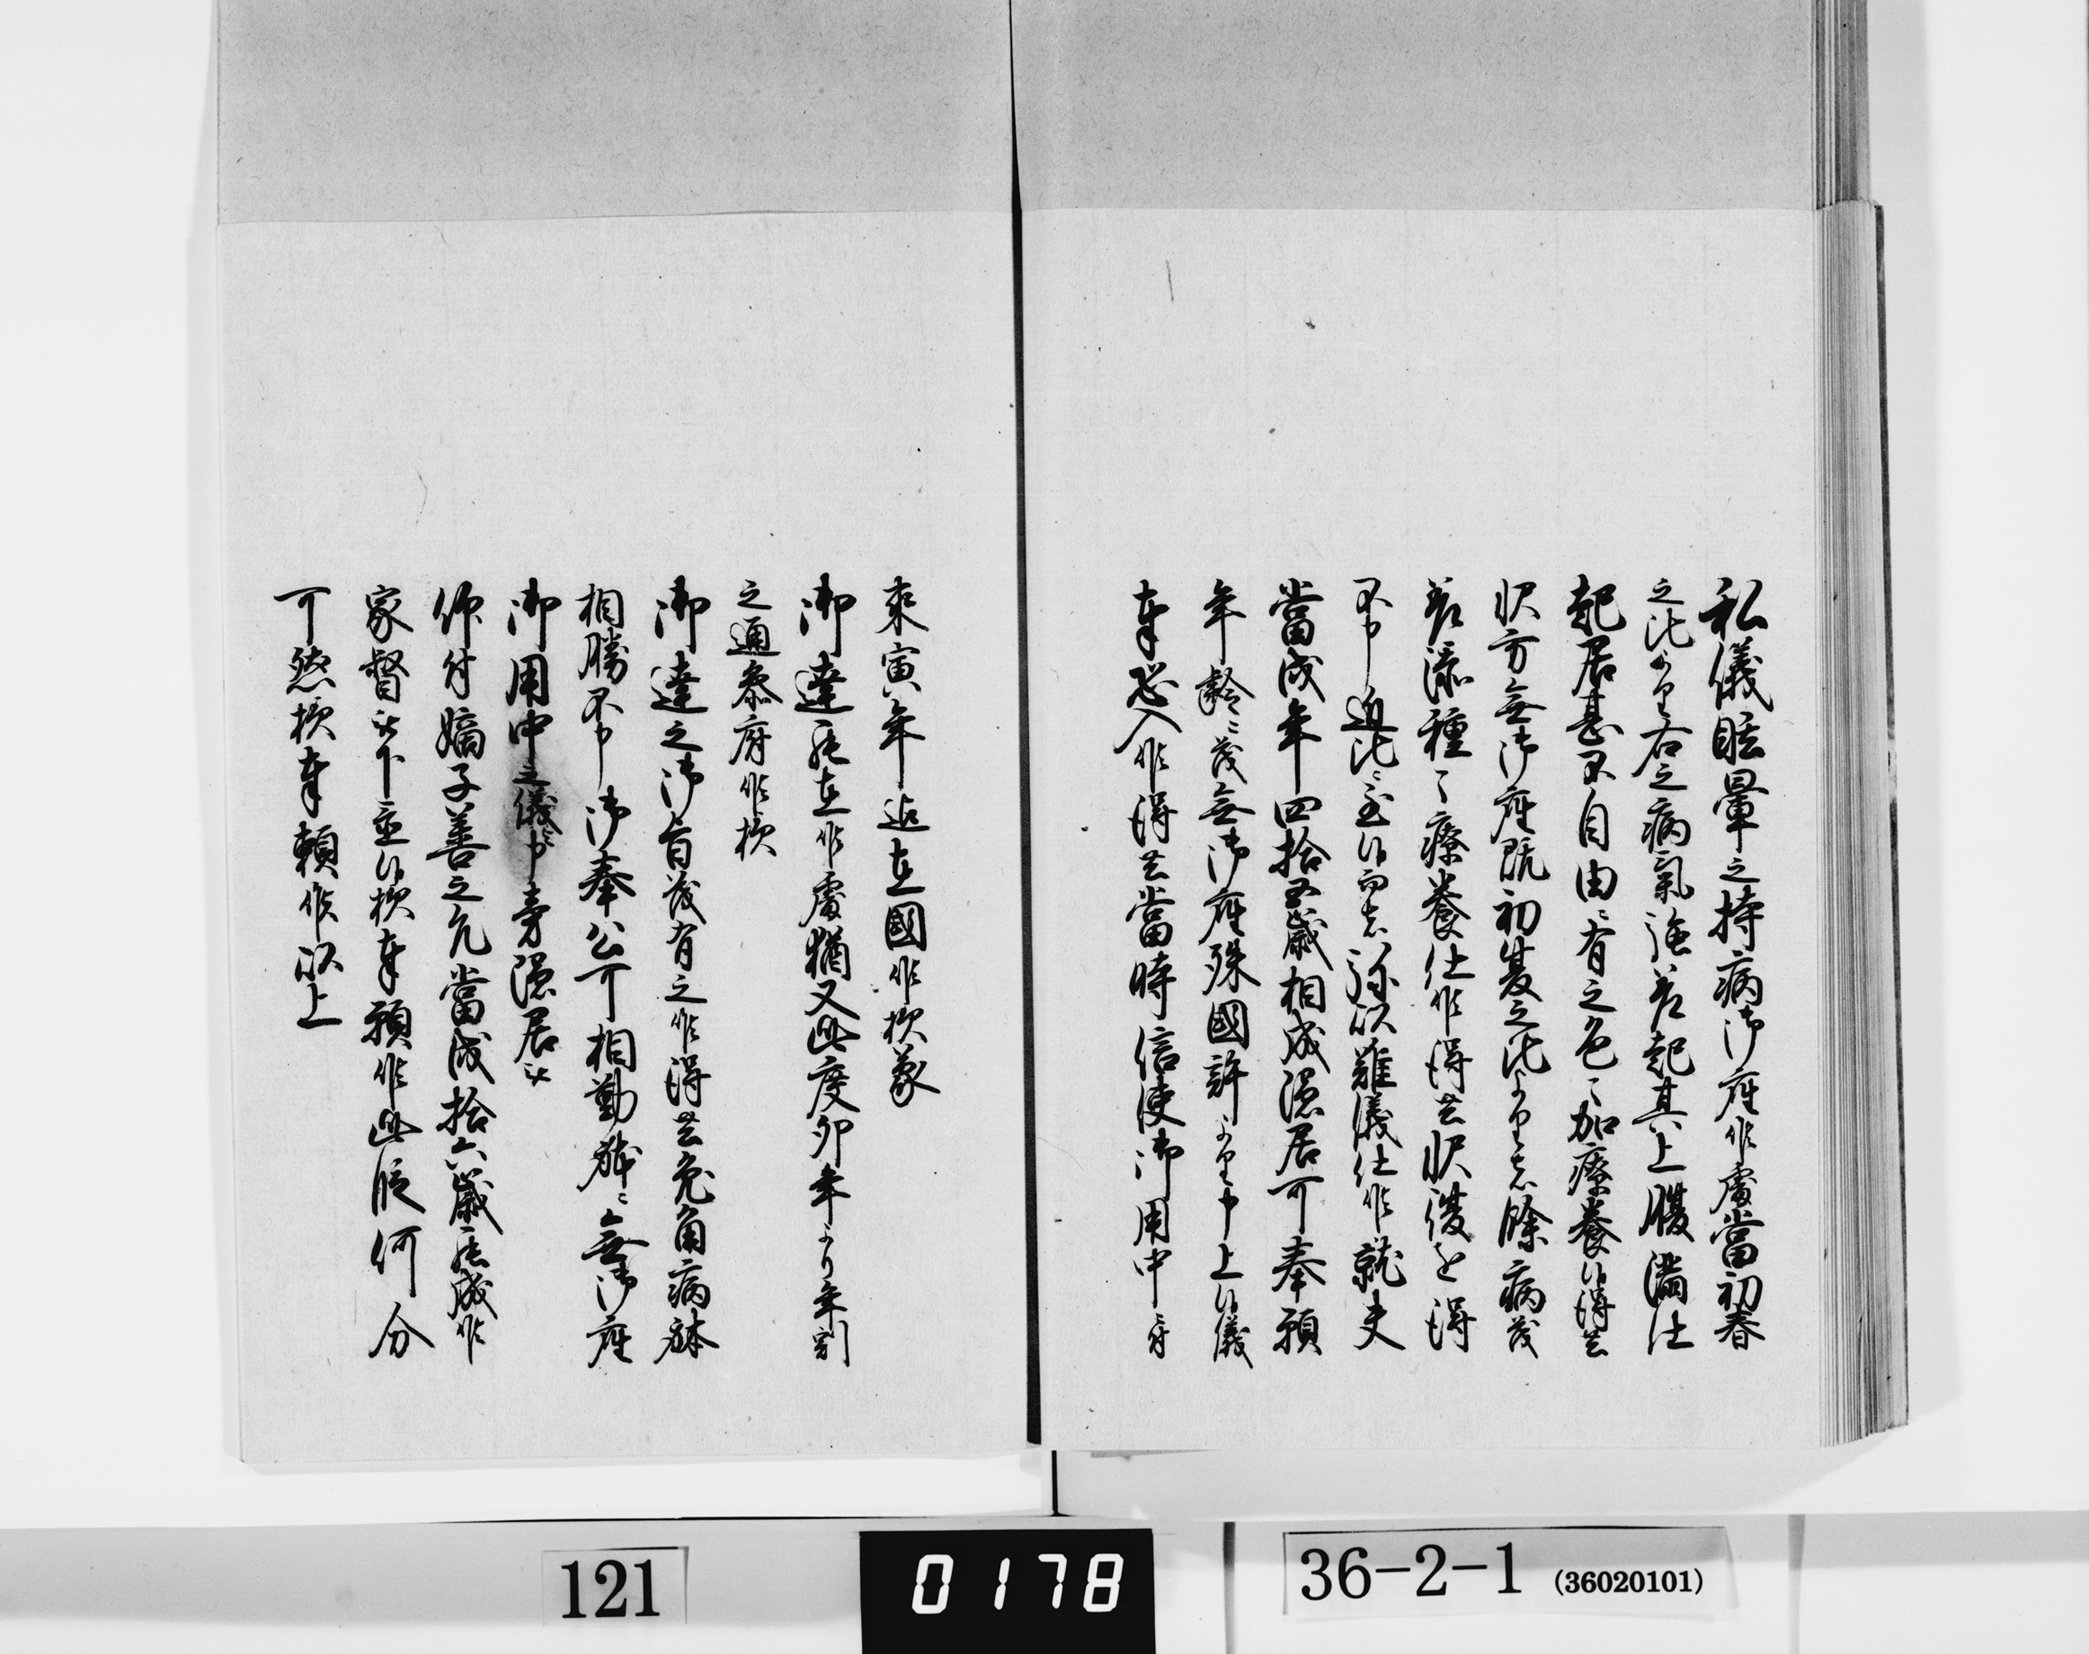 私儀眩暈之持病御座候處當初春
之比ゟ右之病氣強差起其上腹満仕
起居甚不自由ニ有之色々加療養候得共
聢方無御座既初發之比ゟ者餘病茂
差添種々療養仕候得共聢後を得
不申近比ニ至候而者弥以難儀仕候就夫
當戌年四拾五歳相成隠居可奉願
年齢ニ茂無御座殊國許ゟ申上候儀
奉恐入候得共當時信使御用中ニ付
来寅年迄在國候様蒙
御達罷在候處猶又此度卯年より年割
之通参府候様
御達之御旨茂有之候得共兎角病躰
相勝不申御奉公可相勤躰ニ無御座
御用中之儀ニ申旁隠居被
仰付嫡子善之允當戌拾六歳罷成候
家督被下置候様奉願候此段何分
可然様奉頼候以上
121
0178
36-2-1 (36020101)